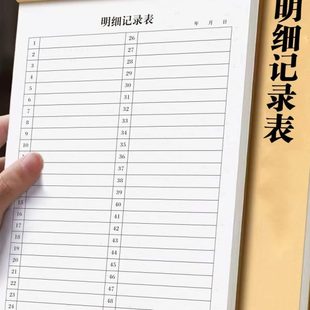 明细记录表
年 月 日
1 26
2 27
3 28
4 29
5 30
6 31
7 32
8 33
9 34
10 35
36
37
38
39
15 40
16 41
17 42
18 43
19 44
20 45
21 46
22 47
23 48
24
明细记录表